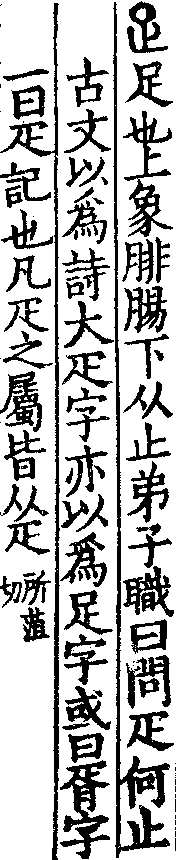 疋足也上象腓腸下从止弟子職曰問疋何止
古文以爲詩大疋字亦以爲足字或曰胥字
一曰疋記也凡疋之屬皆从疋所菹切